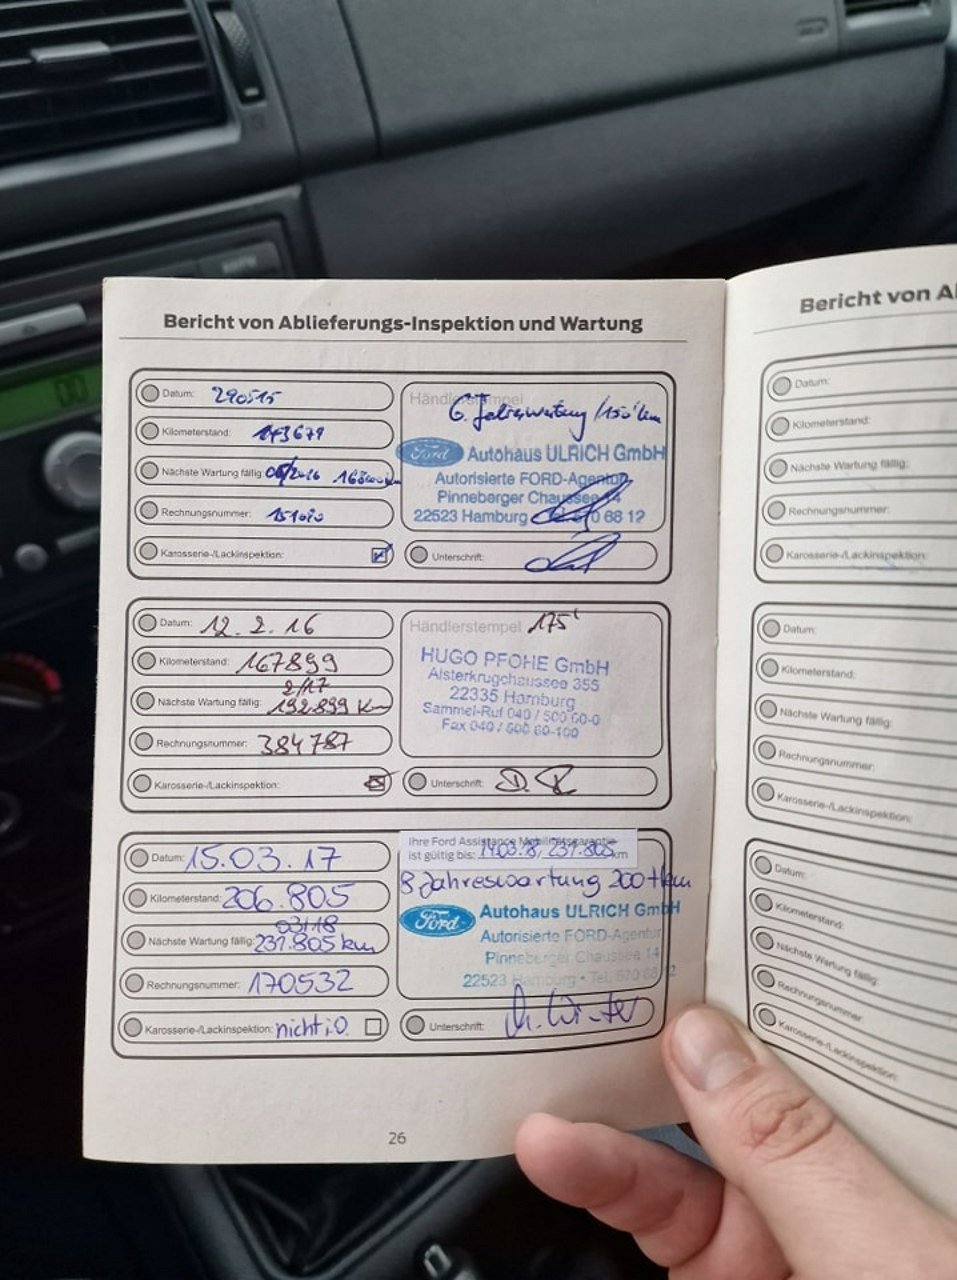 Bericht von Ablieferungs-Inspektion und Wartung
Datum: 290515
Kilometerstand: 143679
Nächste Wartung fällig:
Rechnungsnummer:
Karosserie-/Lackinspektion:
Händlerstempel
6. Jahreswartung /150' km
Ford Autohaus ULRICH GmbH
Autorisierte FORD-Agentur
Pinneberger Chaussee 14
22523 Hamburg
Unterschrift:
Datum: 12.2.16
Kilometerstand: 167899
2/17
Nächste Wartung fällig: 192.899 Km
Rechnungsnummer: 384787
Karosserie-/Lackinspektion:
Händlerstempel 175'
HUGO PFOHE GmbH
Alsterkrugchaussee 355
22335 Hamburg
Sammel-Ruf 040 / 500 60-0
Fax 040 / 500 60-100
Unterschrift: D. R
Datum: 15.03.17
Kilometerstand: 206.805
03/18
Nächste Wartung fällig: 231.805 km
Rechnungsnummer: 170532
Karosserie-/Lackinspektion: nicht i.O.
Ihre Ford Assistance Mobilitätsgarantie
ist gültig bis: 231.805 km
8 Jahreswartung 200tkm
Ford Autohaus ULRICH GmbH
Autorisierte FORD-Agentur
Pinneberger Chaussee 14
22523 Hamburg • Tel. 570 68 12
Unterschrift:
26
Bericht von Ab
Datum:
Kilometerstand:
Nächste Wartung fällig:
Rechnungsnummer:
Karosserie-/Lackinspektion:
Datum:
Kilometerstand:
Nächste Wartung fällig:
Rechnungsnummer:
Karosserie-/Lackinspektion:
Datum:
Kilometerstand:
Nächste Wartung fällig:
Rechnungsnummer:
Karosserie-/Lackinspektion: